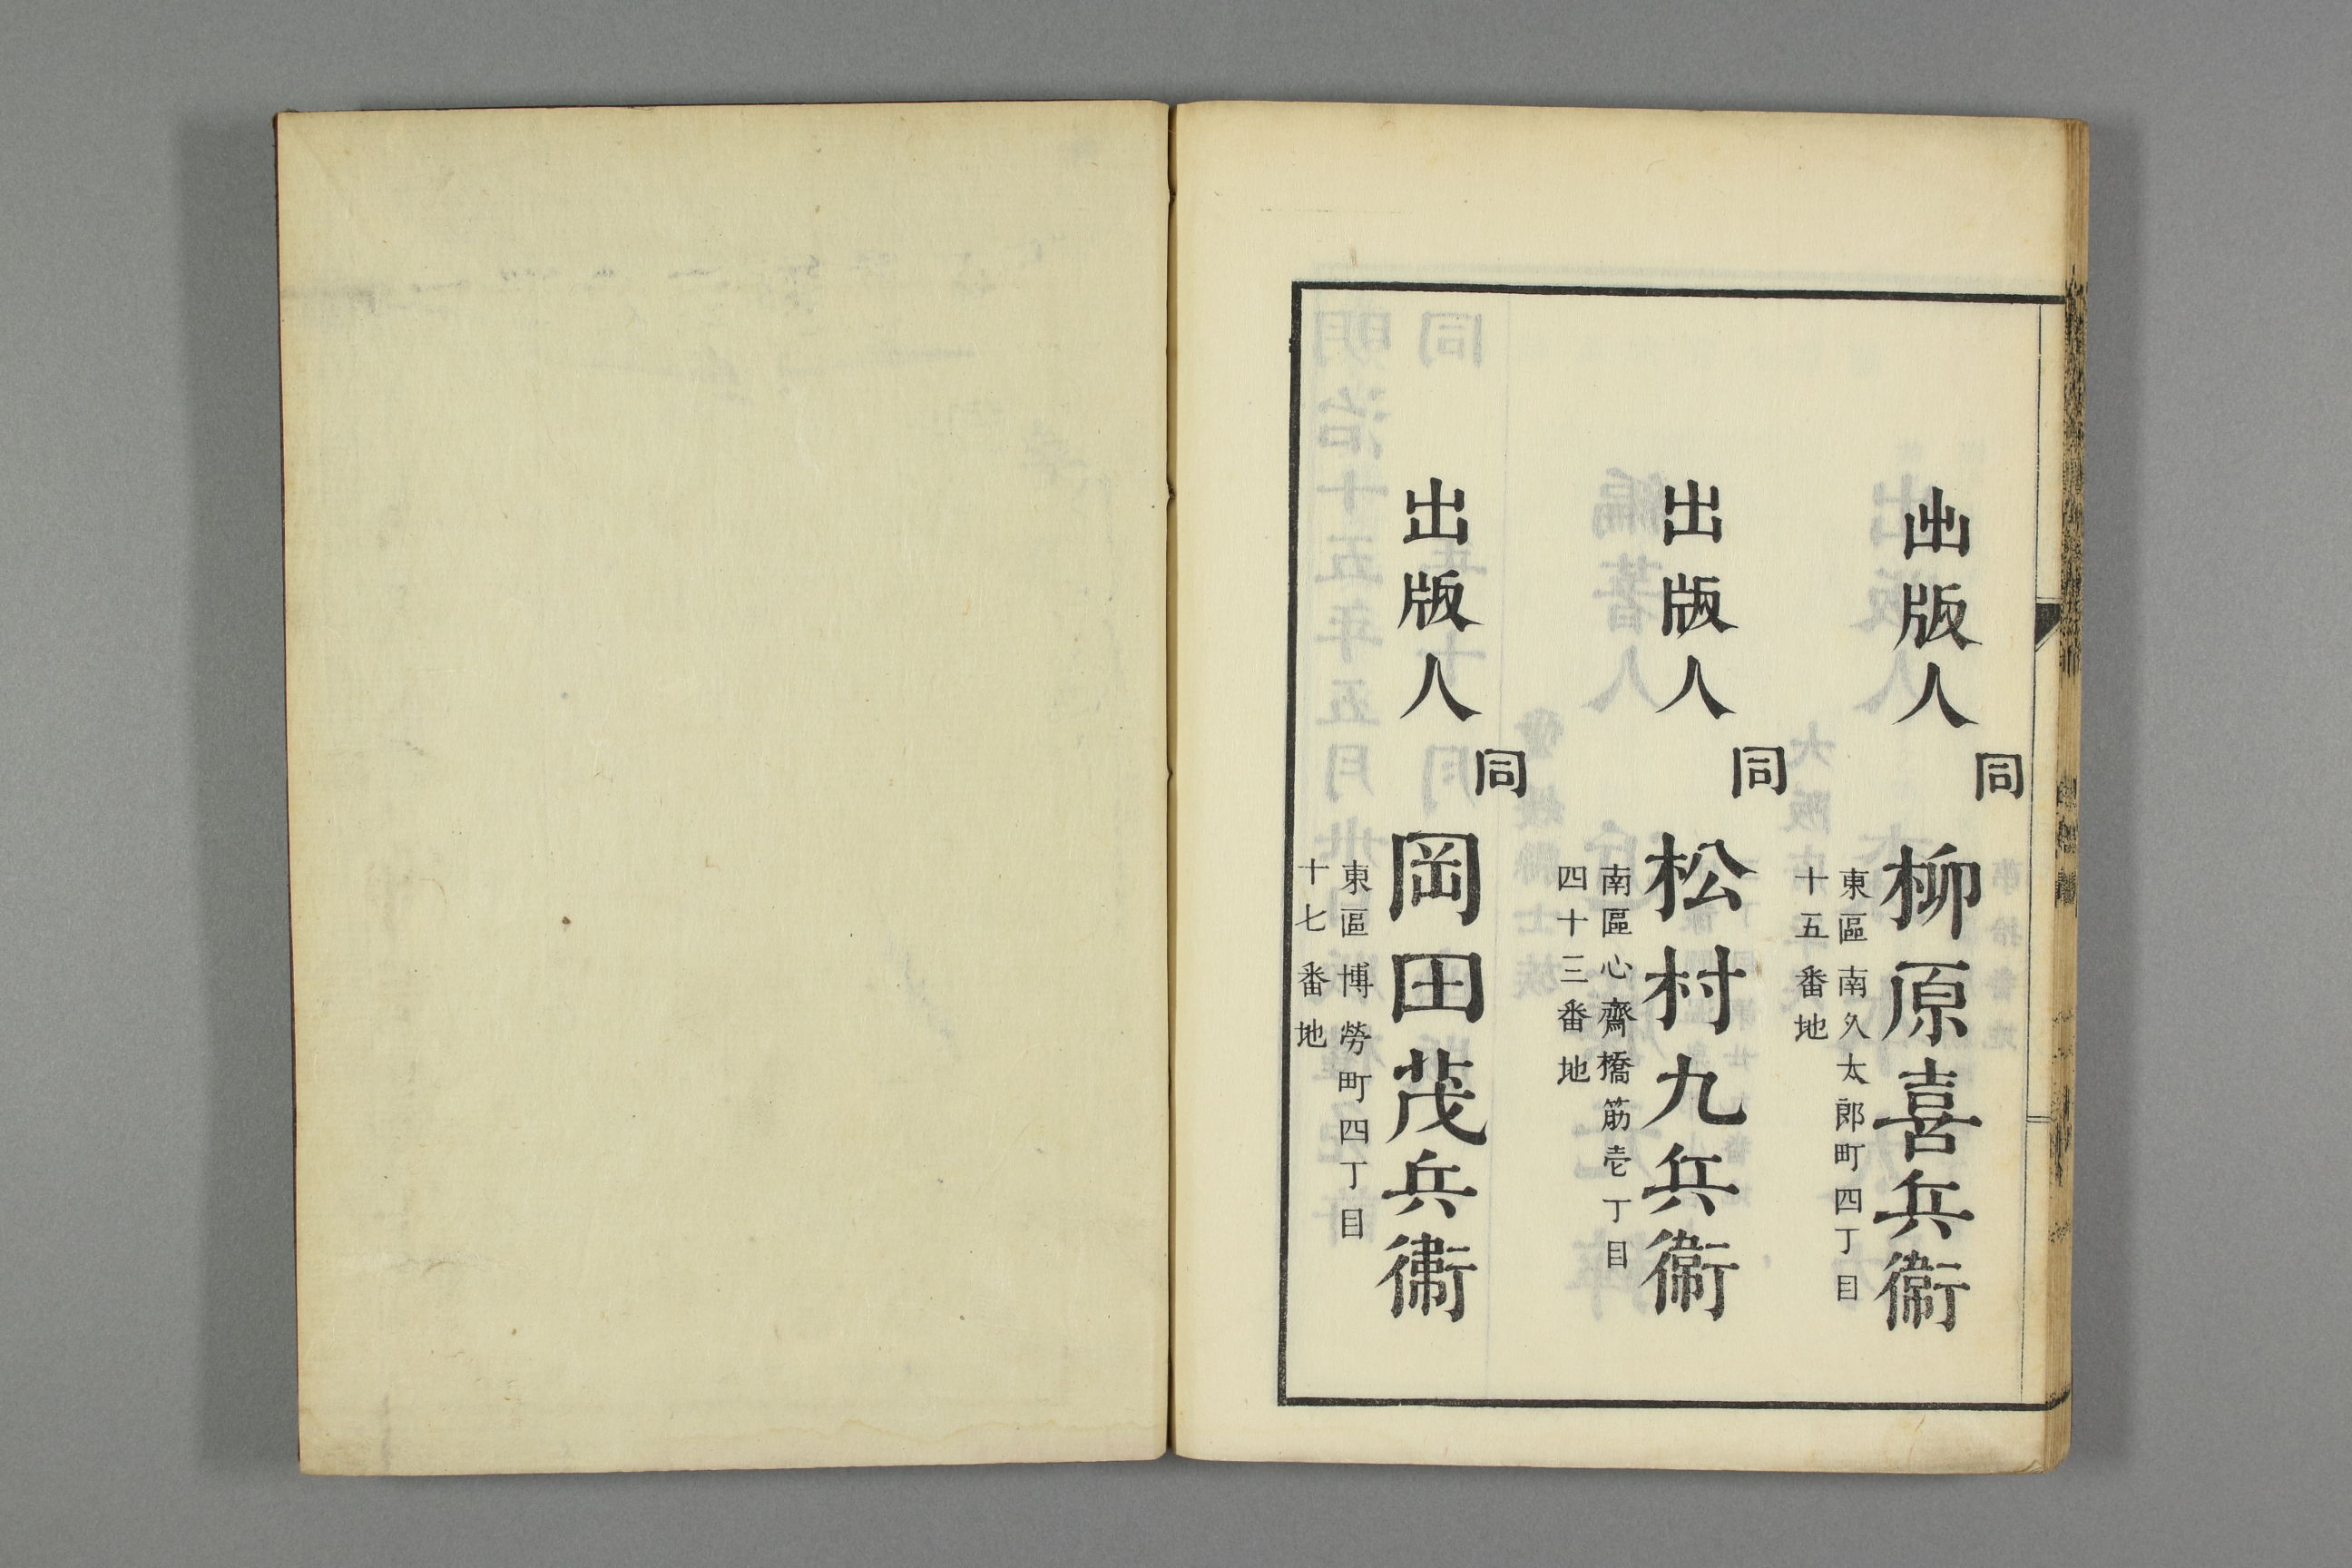 同
出版人 柳原喜兵衞
東區南久太郎町四丁目
十五番地
同
出版人 松村九兵衞
南區心齋橋筋壱丁目
四十三番地
同
出版人 岡田茂兵衞
東區博勞町四丁目
十七番地